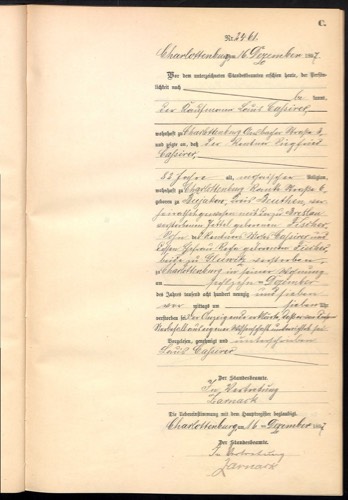 C.
Nr. 2461.
Charlottenburg am 16 Dezember 1897
Vor dem unterzeichneten Standesbeamten erschien heute, der Persön-
lichkeit nach
be kannt,
der Kaufmann Louis Cassirer,
wohnhaft zu Charlottenburg Straße
und zeigte an, daß der Rentner Siegfried
Cassirer,
Jahre alt, mosaischer Religion,
wohnhaft zu Charlottenburg Kant Straße 6,
geboren zu Kreis Beuthen, ver-
heirathet gewesen mit der zu Breslau
verstorbenen geborenen Fischer,
Sohn des Rentners Cassirer und
dessen Ehefrau geborenen Fischer,
beide zu Gleiwitz verstorben,
zu Charlottenburg in seiner Wohnung
am Dezember
des Jahres tausend acht hundert neunzig und sieben
vor mittags um sieben Uhr
verstorben sei. Der Anzeigende erklärte, daß er von diesem
Sterbefall aus eigener Wissenschaft unterrichtet sei.
Vorgelesen, genehmigt und unterschrieben
Louis Cassirer
Der Standesbeamte.
In Vertretung
Zarnack
Die Uebereinstimmung mit dem Hauptregister beglaubigt.
Charlottenburg am 16 ten Dezember 1897
Der Standesbeamte.
In Vertretung
Zarnack